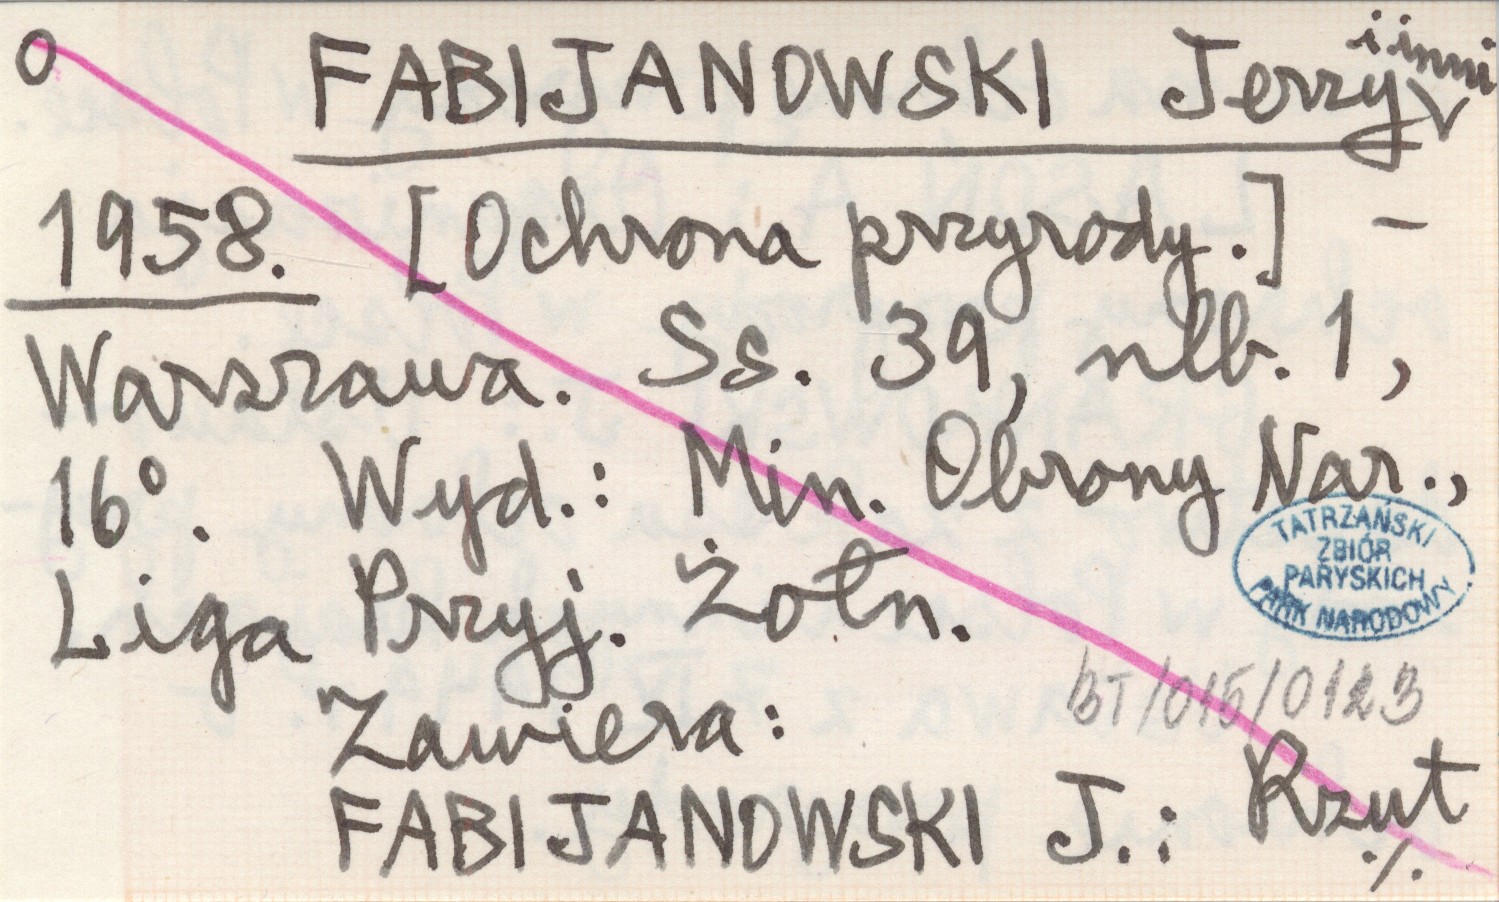 O FABIJANOWSKI Jerzy i inni
1958. [Ochrona przyrody.] –
Warszawa. Ss. 39, nlb. 1,
16°. Wyd.: Min. Obrony Nar.,
Liga Przyj. Żołn.
TATRZAŃSKI
ZBIÓR
PARYSKICH
PARK NARODOWY
BT/015/0123
Zawiera:
FABIJANOWSKI J.: Rzut
./.